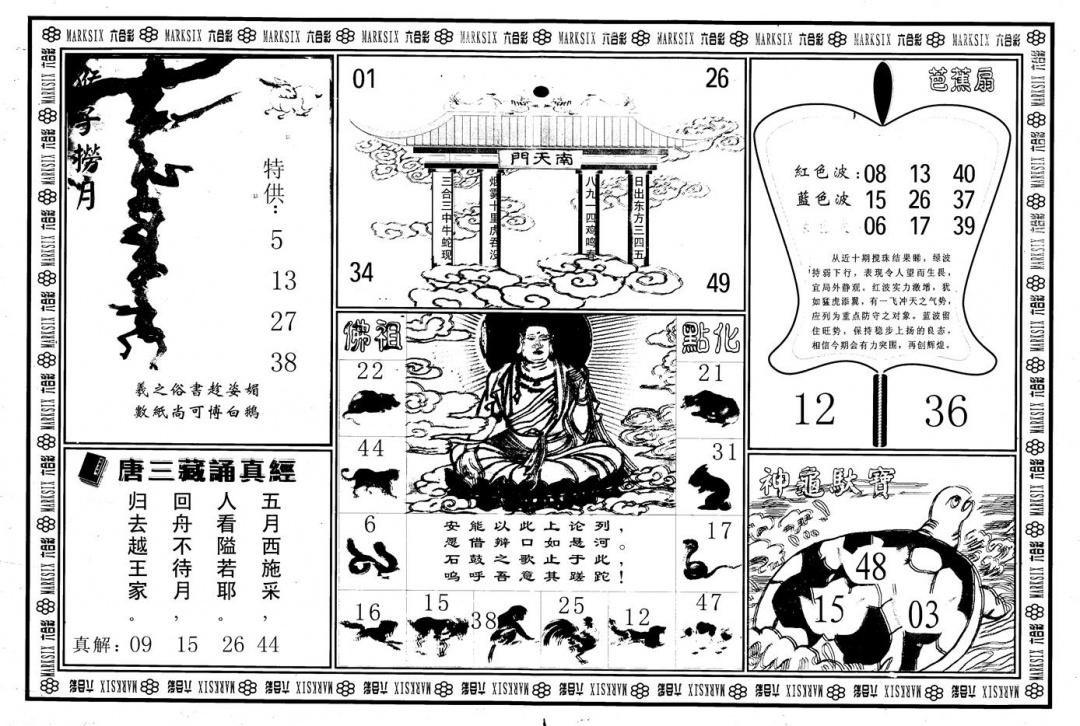 MARKSIX 六合彩 MARKSIX 六合彩 MARKSIX 六合彩 MARKSIX 六合彩 MARKSIX 六合彩 MARKSIX 六合彩 MARKSIX 六合彩 MARKSIX 六合彩 MARKSIX 六合彩 MARKSIX 六合彩
猴子撈月
特供：
5
13
27
38
羲之俗書趁姿媚
數紙尚可博白鵝
唐三藏誦真經
五月西施采，
人看隘若耶。
回舟不待月，
归去越王家。
真解：09 15 26 44
01
26
南天門
三合三中牛蛇现
烟雾十里虎吞没
八九一四鸡鸣春
日出东方三四五
34
49
佛祖
點化
22
21
44
31
6
17
安能以此上论列，
愿借辩口如悬河。
石鼓之歌止于此，
呜呼吾意其蹉跎！
16
15
38
25
12
47
芭蕉扇
紅色波：08 13 40
藍色波 15 26 37
06 17 39
从近十期搅珠结果睇，绿波
持弱下行，表现令人望而生畏，
宜局外静观。红波实力激增，犹
如猛虎添翼，有一飞冲天之气势，
应列为重点防守之对象。蓝波留
住旺势，保持稳步上扬的良态，
相信今期会有力突围，再创辉煌。
12
36
神龜馱寶
48
15
03